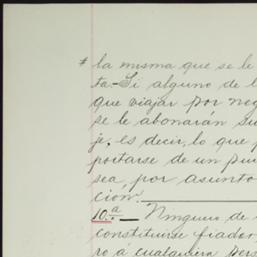 * la misma que se le
ta-Si alguno de l
que viajar por neg
se le abonarán su
je, es decir, lo que p
portarse de un pun
sea, por asunto
ción.
10.ª - Ninguno de
constituirse fiador
ro á cualquiera pers